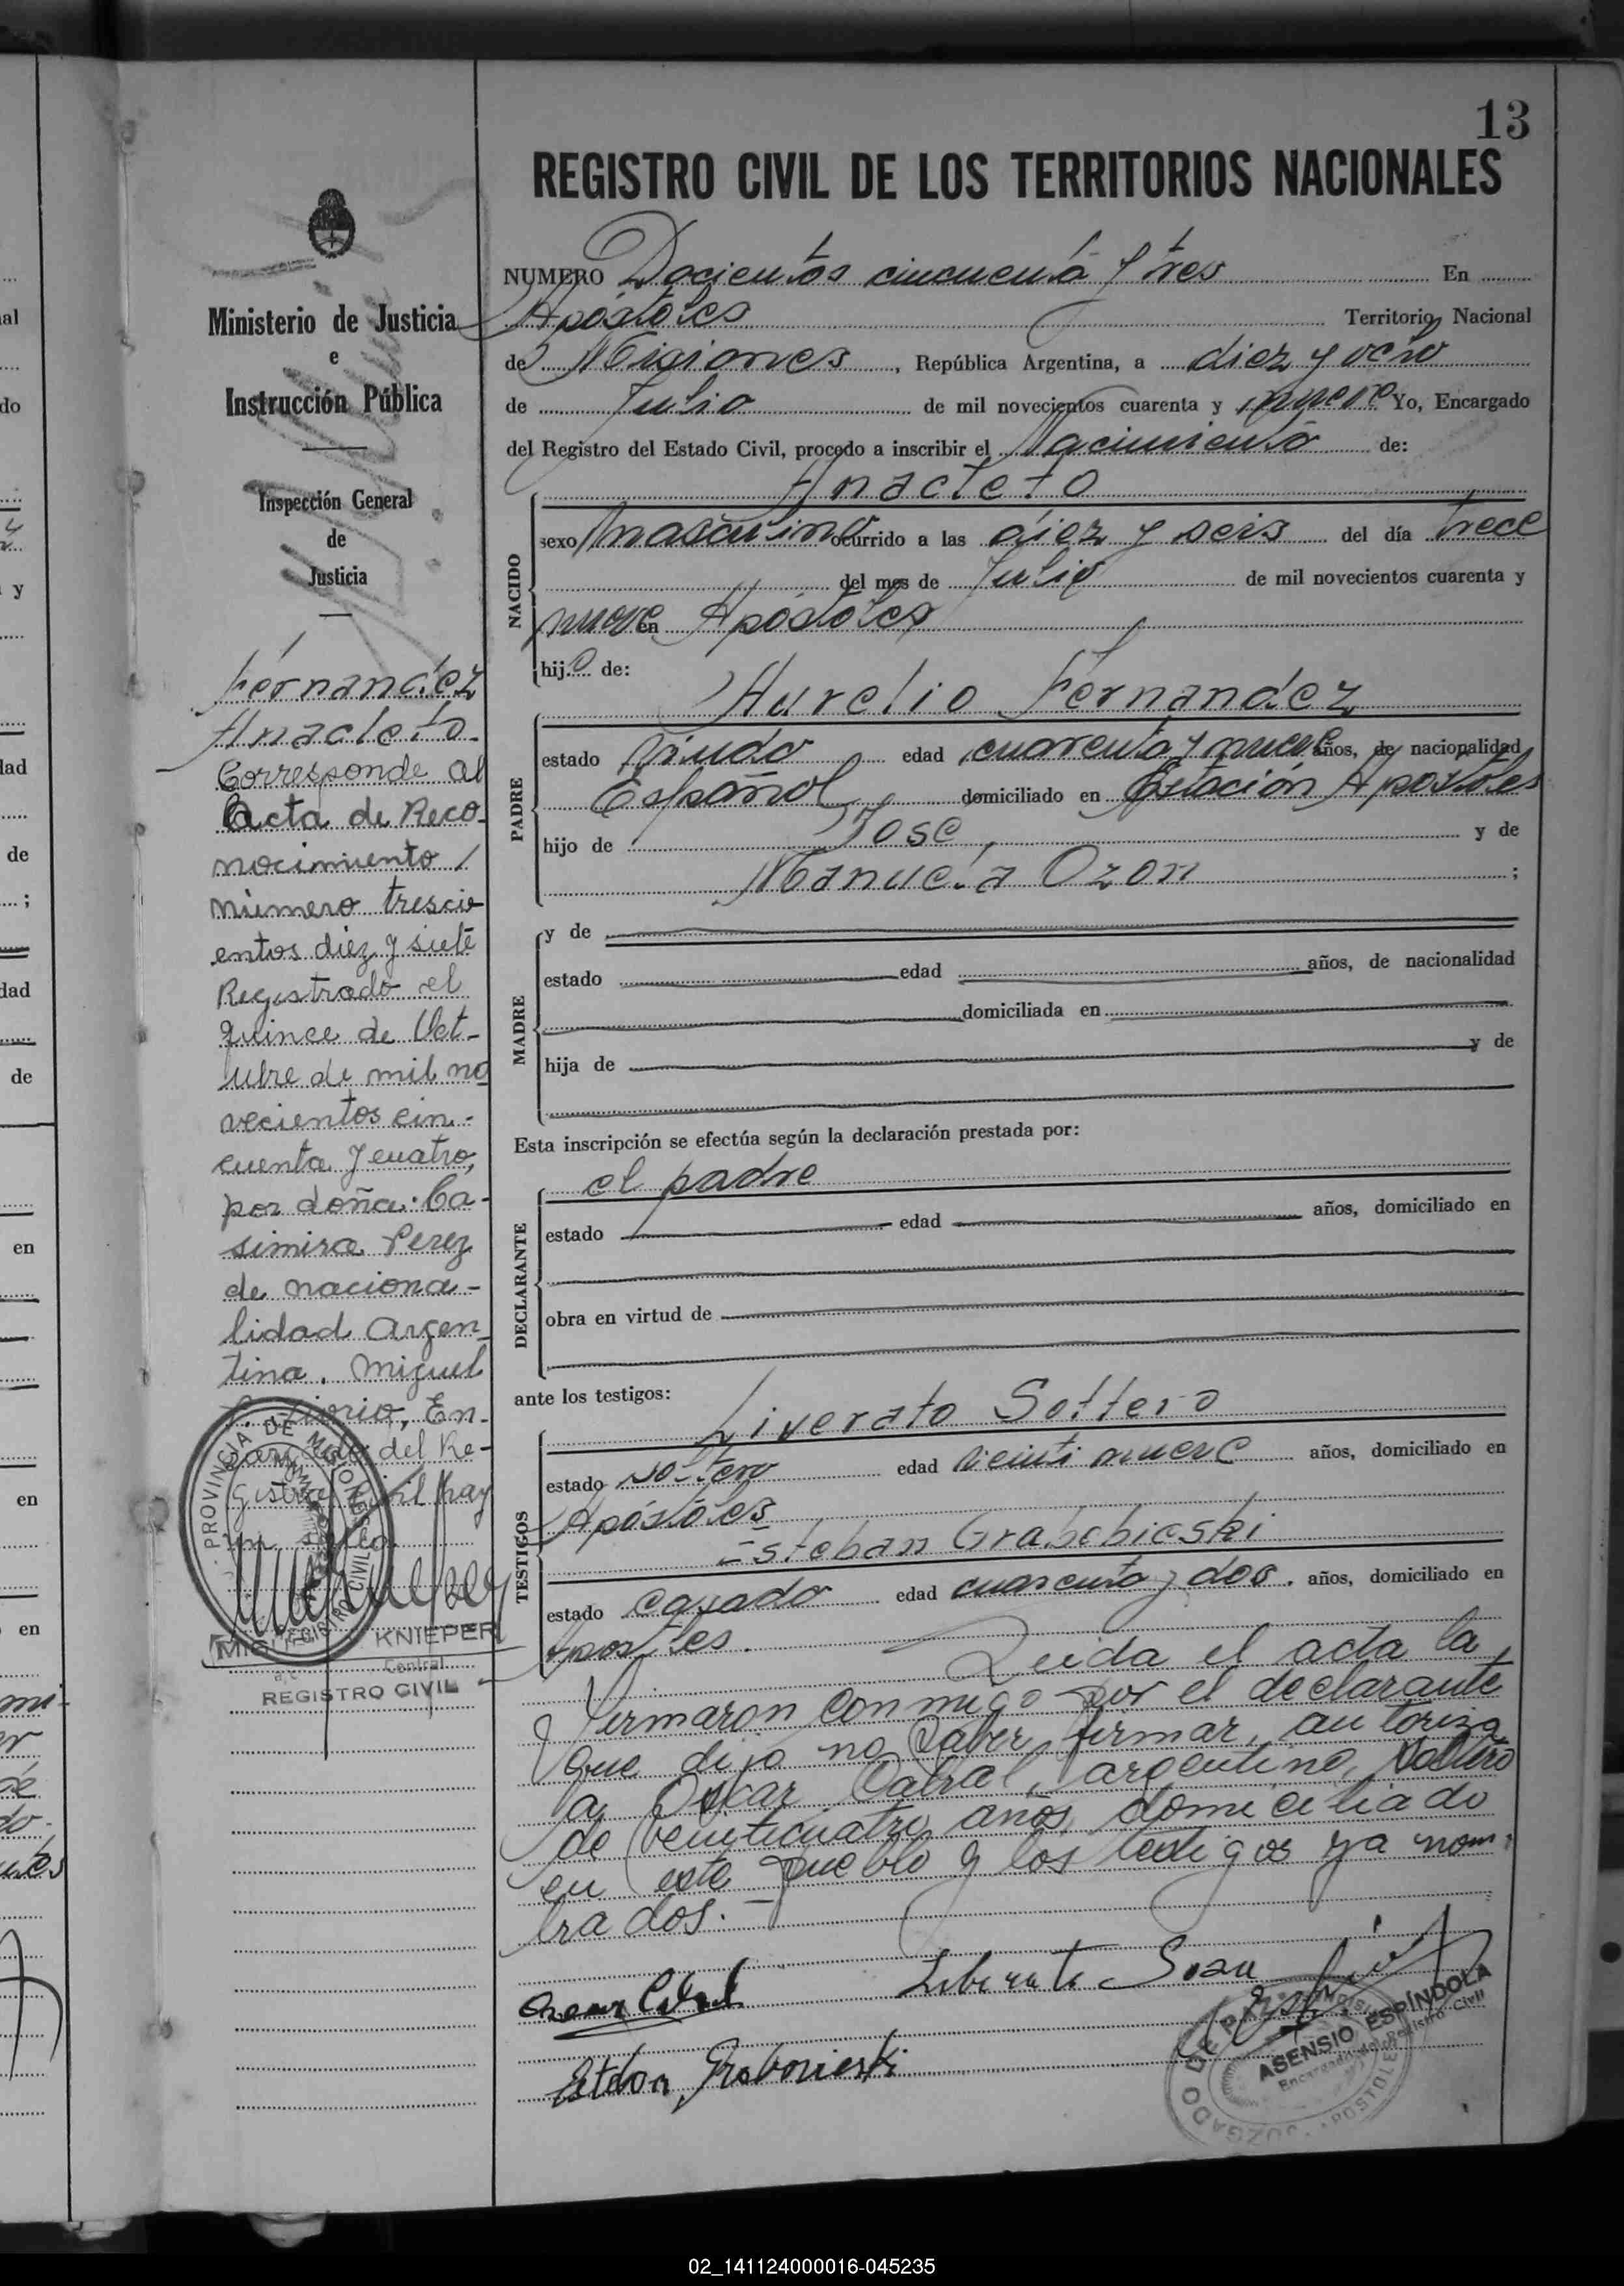 13
REGISTRO CIVIL DE LOS TERRITORIOS NACIONALES
NUMERO Docientos cincuenta y tres En
Apóstoles Territorio Nacional
de Misiones, República Argentina, a diez y ocho
de Julio de mil novecientos cuarenta y nueve Yo, Encargado
del Registro del Estado Civil, procedo a inscribir el Nacimiento de:
Anacleto
NACIDO
sexo masculino ocurrido a las diez y seis del día trece
del mes de Julio de mil novecientos cuarenta y
nueve en Apóstoles
hijo de:
Aurelio Fernandez
PADRE
estado viudo edad cuarenta y nueve años, de nacionalidad
Español domiciliado en Estación Apóstoles
hijo de José y de
Manuela Ozon ;
MADRE
y de
estado edad años, de nacionalidad
domiciliada en
hija de y de
Esta inscripción se efectúa según la declaración prestada por:
el padre
DECLARANTE
estado edad años, domiciliado en
obra en virtud de
ante los testigos:
Liverato Sottero
TESTIGOS
estado soltero edad veinti nueve años, domiciliado en
Apóstoles
Esteban
estado casado edad cuarenta y dos. años, domiciliado en
Apostoles. Leida el acta la
firmaron conmigo por el declarante
que dijo no saber firmar, autoriza
a Oscar Cabral, argentino, soltero
de veinticuatro años, domiciliado
en este pueblo y los testigos ya nom-
brados.
ASENSIO ESPÍNDOLA
Encargado del Registro Civil
JUZGADO DE PAZ
APOSTOLES
Ministerio de Justicia
e
Instrucción Pública
Inspección General
de
Justicia
Fernandez
Anacleto
Corresponde al
Acta de Reco-
nocimiento
número trescie
entos diez y siete
Registrado el
quince de Oct-
ubre de mil no
vecientos cin-
cuenta y cuatro,
por doña: Ca-
simira Perez
de naciona-
lidad Argen-
tina. Miguel
En-
cargado del Re-
gistro Civil
PROVINCIA DE MISIONES
REGISTRO CIVIL
KNIEPER
Central
REGISTRO CIVIL
02_141124000016-045235